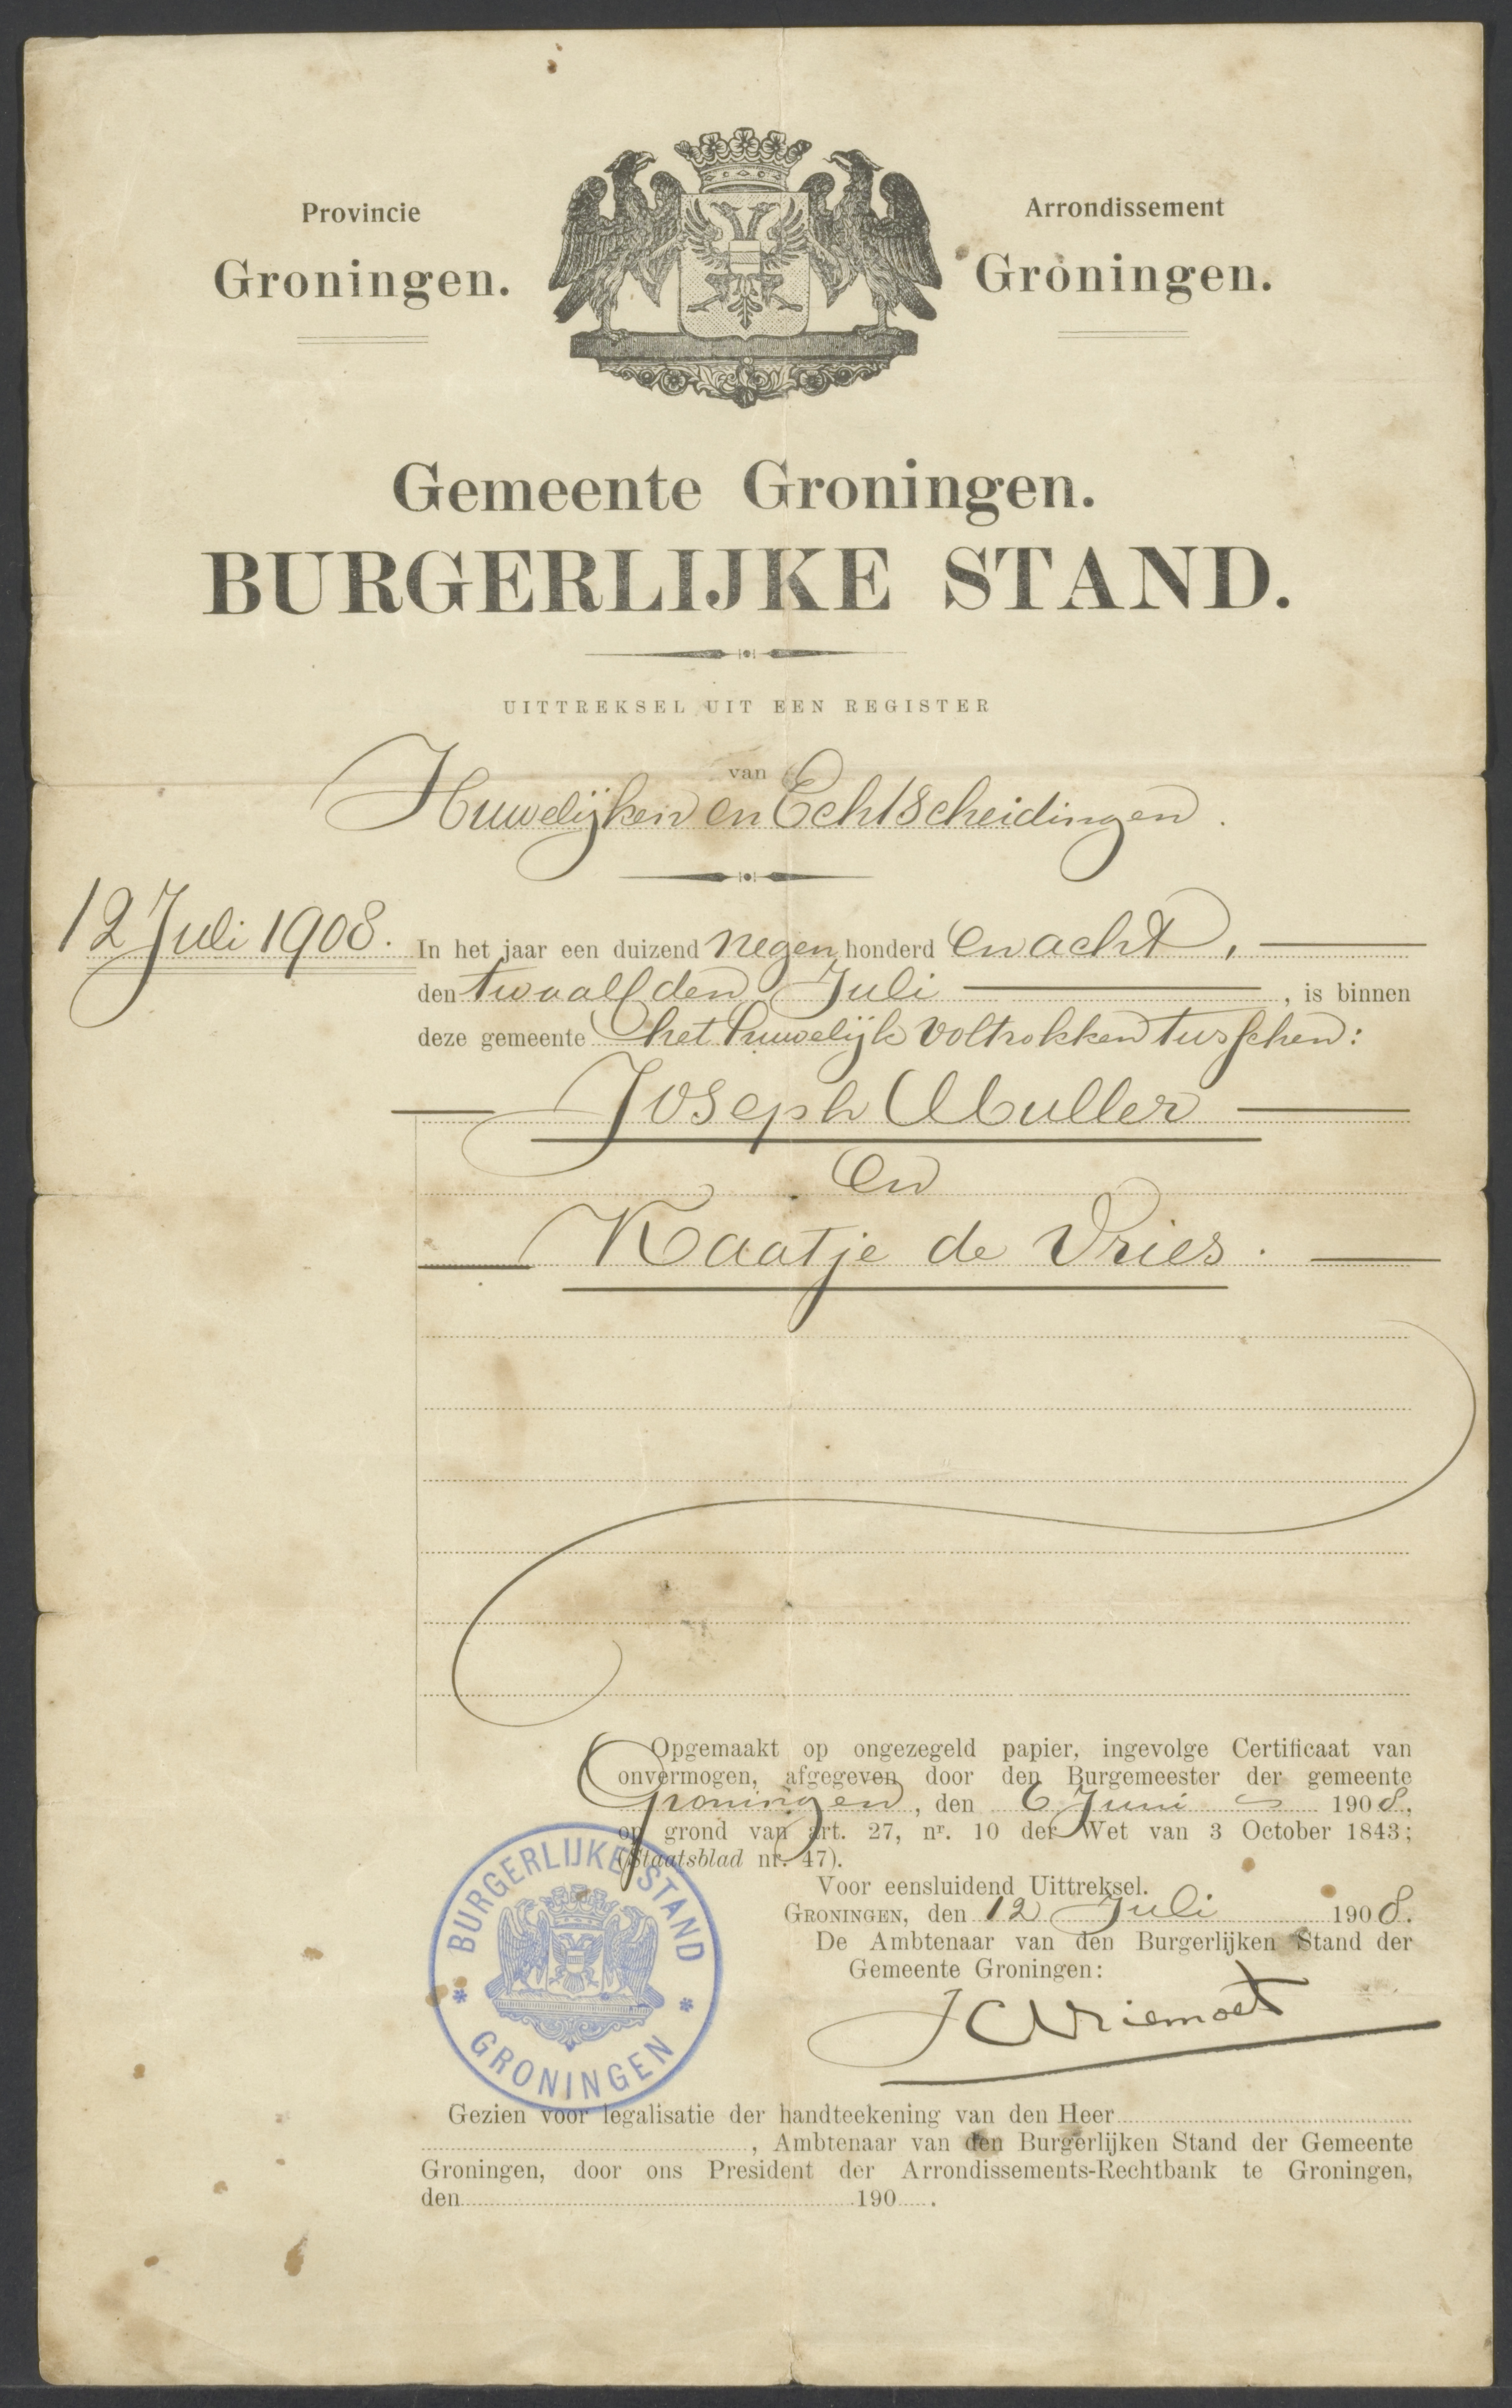 Provincie
Groningen.
Arrondissement
Groningen.
Gemeente Groningen.
BURGERLIJKE STAND.
UITTREKSEL UIT EEN REGISTER
van
Huwelijken en Echtscheidingen.
12 Juli 1908.
In het jaar een duizend negen honderd en acht,
den twaalfden Juli , is binnen
deze gemeente het huwelijk voltrokken tusschen:
Joseph Muller
en
Kaatje de Vries.
Opgemaakt op ongezegeld papier, ingevolge Certificaat van
onvermogen, afgegeven door den Burgemeester der gemeente
Groningen, den 6 Juni 1908,
op grond van art. 27, nr. 10 der Wet van 3 October 1843;
(Staatsblad nr. 47).
Voor eensluidend Uittreksel.
GRONINGEN, den 12 Juli 1908.
De Ambtenaar van den Burgerlijken Stand der
Gemeente Groningen:
JCVriemoet
BURGERLIJKE STAND
* GRONINGEN *
Gezien voor legalisatie der handteekening van den Heer
, Ambtenaar van den Burgerlijken Stand der Gemeente
Groningen, door ons President der Arrondissements-Rechtbank te Groningen,
den 190 .